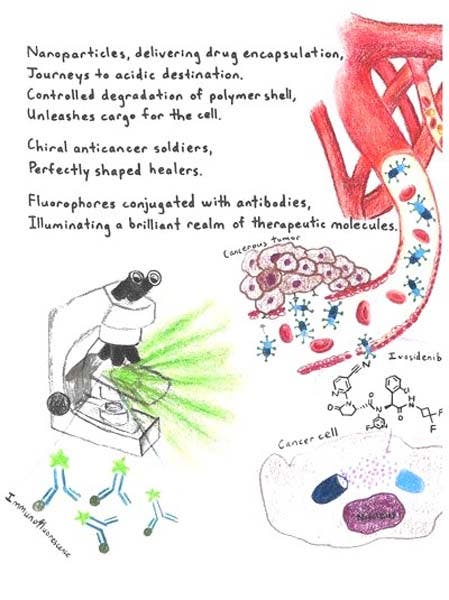 Nanoparticles, delivering drug encapsulation,
Journeys to acidic destination.
Controlled degradation of polymer shell,
Unleashes cargo for the cell.
Chiral anticancer soldiers,
Perfectly shaped healers.
Fluorophores conjugated with antibodies,
Illuminating a brilliant realm of therapeutic molecules.
Cancerous tumor
Ivosidenib
N
N
O
N
O
N
Cl
O
H
N
F
F
F
N
Cancer cell
Nucleus
Immunofluorescence